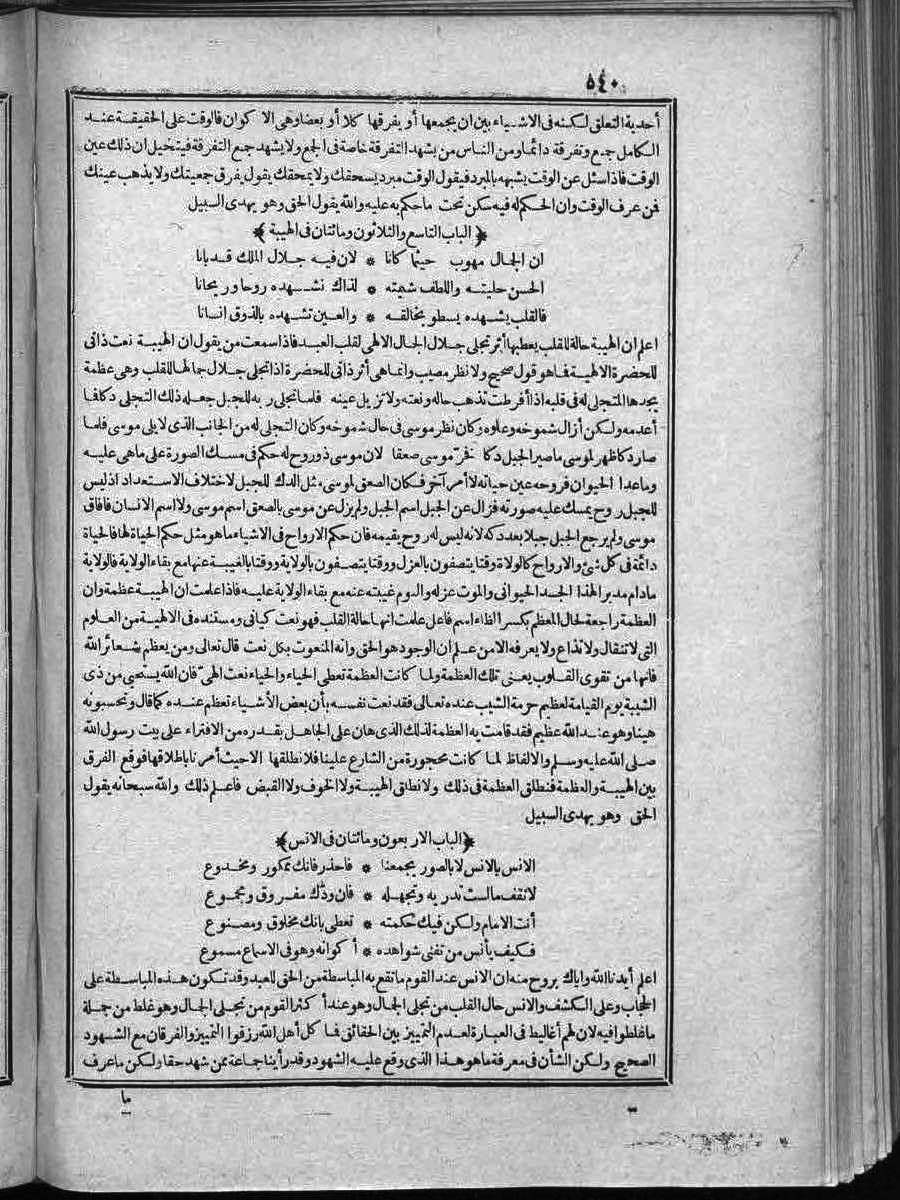 ٥٤٠
أحدية التعلق لكنه فى الاشياء بين ان يجمعها أو يفرقها كلا أو بعضا وهى الا كوان فالوقت على الحقيقة عند
الكامل جمع وتفرقة دائما ومن الناس من يشهد التفرقة خاصة فى الجمع ولا يشهد جمع التفرقة فيتخيل ان ذلك عين
الوقت فاذا سئل عن الوقت يشبهه بالمبرد فيقول الوقت مبرد يسحقك ولا يمحقك يقول يفرق جمعيتك ولا يذهب عينك
فمن عرف الوقت وان الحكم له فيه سكن تحت ما حكم به عليه والله يقول الحق وهو يهدى السبيل
﴿الباب التاسع والثلاثون ومائتان فى الهيبة﴾
ان الجمال مهوب حيثما كانا * لان فيه جلال الملك قد بانا
الحسن حليته واللطف شيمته * لذاك نشهده روحا وريحانا
فالقلب يشهده يسطو بخالقه * والعين تشهده بالذوق انسانا
اعلم ان الهيبة حالة للقلب يعطيها أثر تجلى جلال الجمال الالهى لقلب العبد فاذا سمعت من يقول ان الهيبة نعت ذاتى
للحضرة الالهية فما هو قول صحيح ولا نظر مصيب وانما هى أثر ذاتى للحضرة اذا تجلى جلال جمالها للقلب وهى عظمة
يجدها المتجلى له فى قلبه اذا أفرطت تذهب حاله ونعته ولا تزيل عينه فلما تجلى ربه للجبل جعله ذلك التجلى دكا فما
أعدمه ولكن أزال شموخه وعلوه وكان نظر موسى فى حال شموخه وكان التجلى له من الجانب الذى لا يلى موسى فلما
صار دكا ظهر لموسى ما صير الجبل دكا فخرّ موسى صعقا لان موسى ذو روح له حكم فى مسك الصورة على ماهى عليه
وما عدا الحيوان فروحه عين حياته لا أمر آخر فكان الصعق لموسى مثل الدك للجبل لاختلاف الاستعداد اذ ليس
للجبل روح يمسك عليه صورته فزال عن الجبل اسم الجبل ولم يزل عن موسى بالصعق اسم موسى ولا اسم الانسان فافاق
موسى ولم يرجع الجبل جبلا بعد دكه لانه ليس له روح يقيمه فان حكم الارواح فى الاشياء ما هو مثل حكم الحياة لها فالحياة
دائمة فى كل شئ والارواح كالولاة وقتا يتصفون بالعزل ووقتا يتصفون بالولاية ووقتا بالغيبة عنها مع بقاء الولاية فالولاية
مادام مدبر الهذا الجسد الحيوانى والموت عزله والنوم غيبته عنه مع بقاء الولاية عليه فاذا علمت ان الهيبة عظمة وان
العظمة راجعة لحال المعظم بكسر الظاء اسم فاعل علمت انها حالة القلب فهو نعت كيانى ومستنده فى الالهية من العلوم
التى لا تنقال ولا تذاع ولا يعرفه الا من علم ان الوجود هو الحق وانه المنعوت بكل نعت قال تعالى ومن يعظم شعائر الله
فانها من تقوى القلوب يعنى تلك العظمة ولما كانت العظمة تعطى الحياء والحياء نعت الهىّ فان الله يستحيى من ذى
الشيبة يوم القيامة لعظيم حرمة الشيب عنده تعالى فقد نعت نفسه بأن بعض الأشياء تعظم عنده كما قال وتحسبونه
هينا وهو عند الله عظيم فقد قامت به العظمة لذلك الذى هان على الجاهل بقدره من الافتراء على بيت رسول الله
صلى الله عليه وسلم والالفاظ لما كانت محجورة من الشارع علينا فلا نطلقها الا حيث أمرنا باطلاقها فوقع الفرق
بين الهيبة والعظمة فنطلق العظمة فى ذلك ولا نطلق الهيبة ولا الخوف ولا القبض فاعلم ذلك والله سبحانه يقول
الحق وهو يهدى السبيل
﴿الباب الاربعون ومائتان فى الانس﴾
الانس بالانس لا بالصور يجمعنا * فاحذر فانك ممكور ومخدوع
لا تقف ما لست تدريه وتجهله * فان ودّك مفروق ومجموع
أنت الامام ولكن فيك حكمته * تعطى بانك مخلوق ومصنوع
فكيف يأنس من تفنى شواهده * أكوانه وهو فى الاسماع مسموع
اعلم أيدنا الله واياك بروح منه ان الانس عند القوم ما تقع به المباسطة من الحق للعبد وقد تكون هذه المباسطة على
الحجاب وعلى الكشف والانس حال القلب من تجلى الجمال وهو عند أكثر القوم من تجلى الجمال وهو غلط من جملة
ما غلطوا فيه لان لهم أغاليط فى العبارة لعدم التمييز بين الحقائق فما كل أهل الله رزقوا التمييز والفرقان مع الشهود
الصحيح ولكن الشأن فى معرفة ما هو هذا الذى وقع عليه الشهود وقد رأينا جماعة ممن شهد حقا ولكن ما عرف
ما